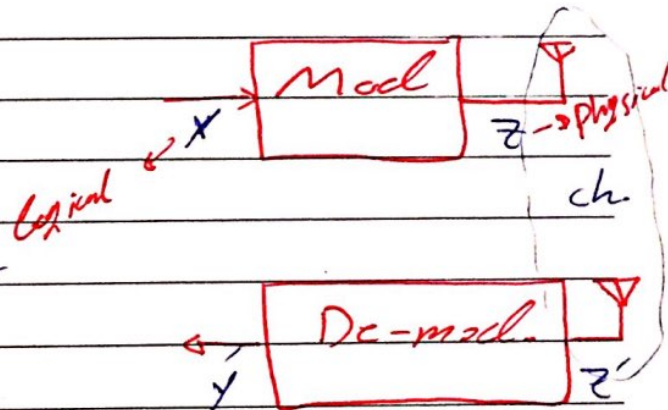 Mod
X
Z → physical
logical
ch.
De-mod.
y'
Z'